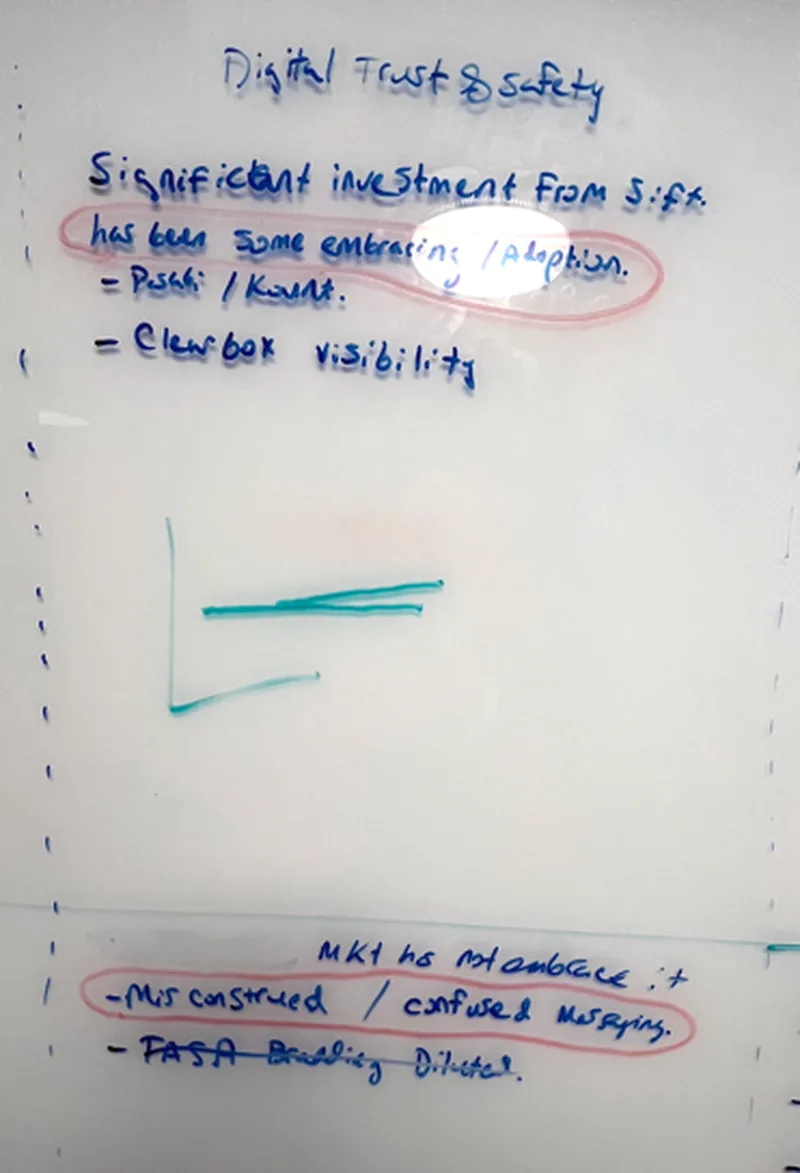 Digital Trust & safety
Significant investment from Sift.
has been some embracing / Adoption.
- / Kount.
- Clearbox visibility
MKt has not embrace it
- Misconstrued / confused Messaging.
- Diluted.